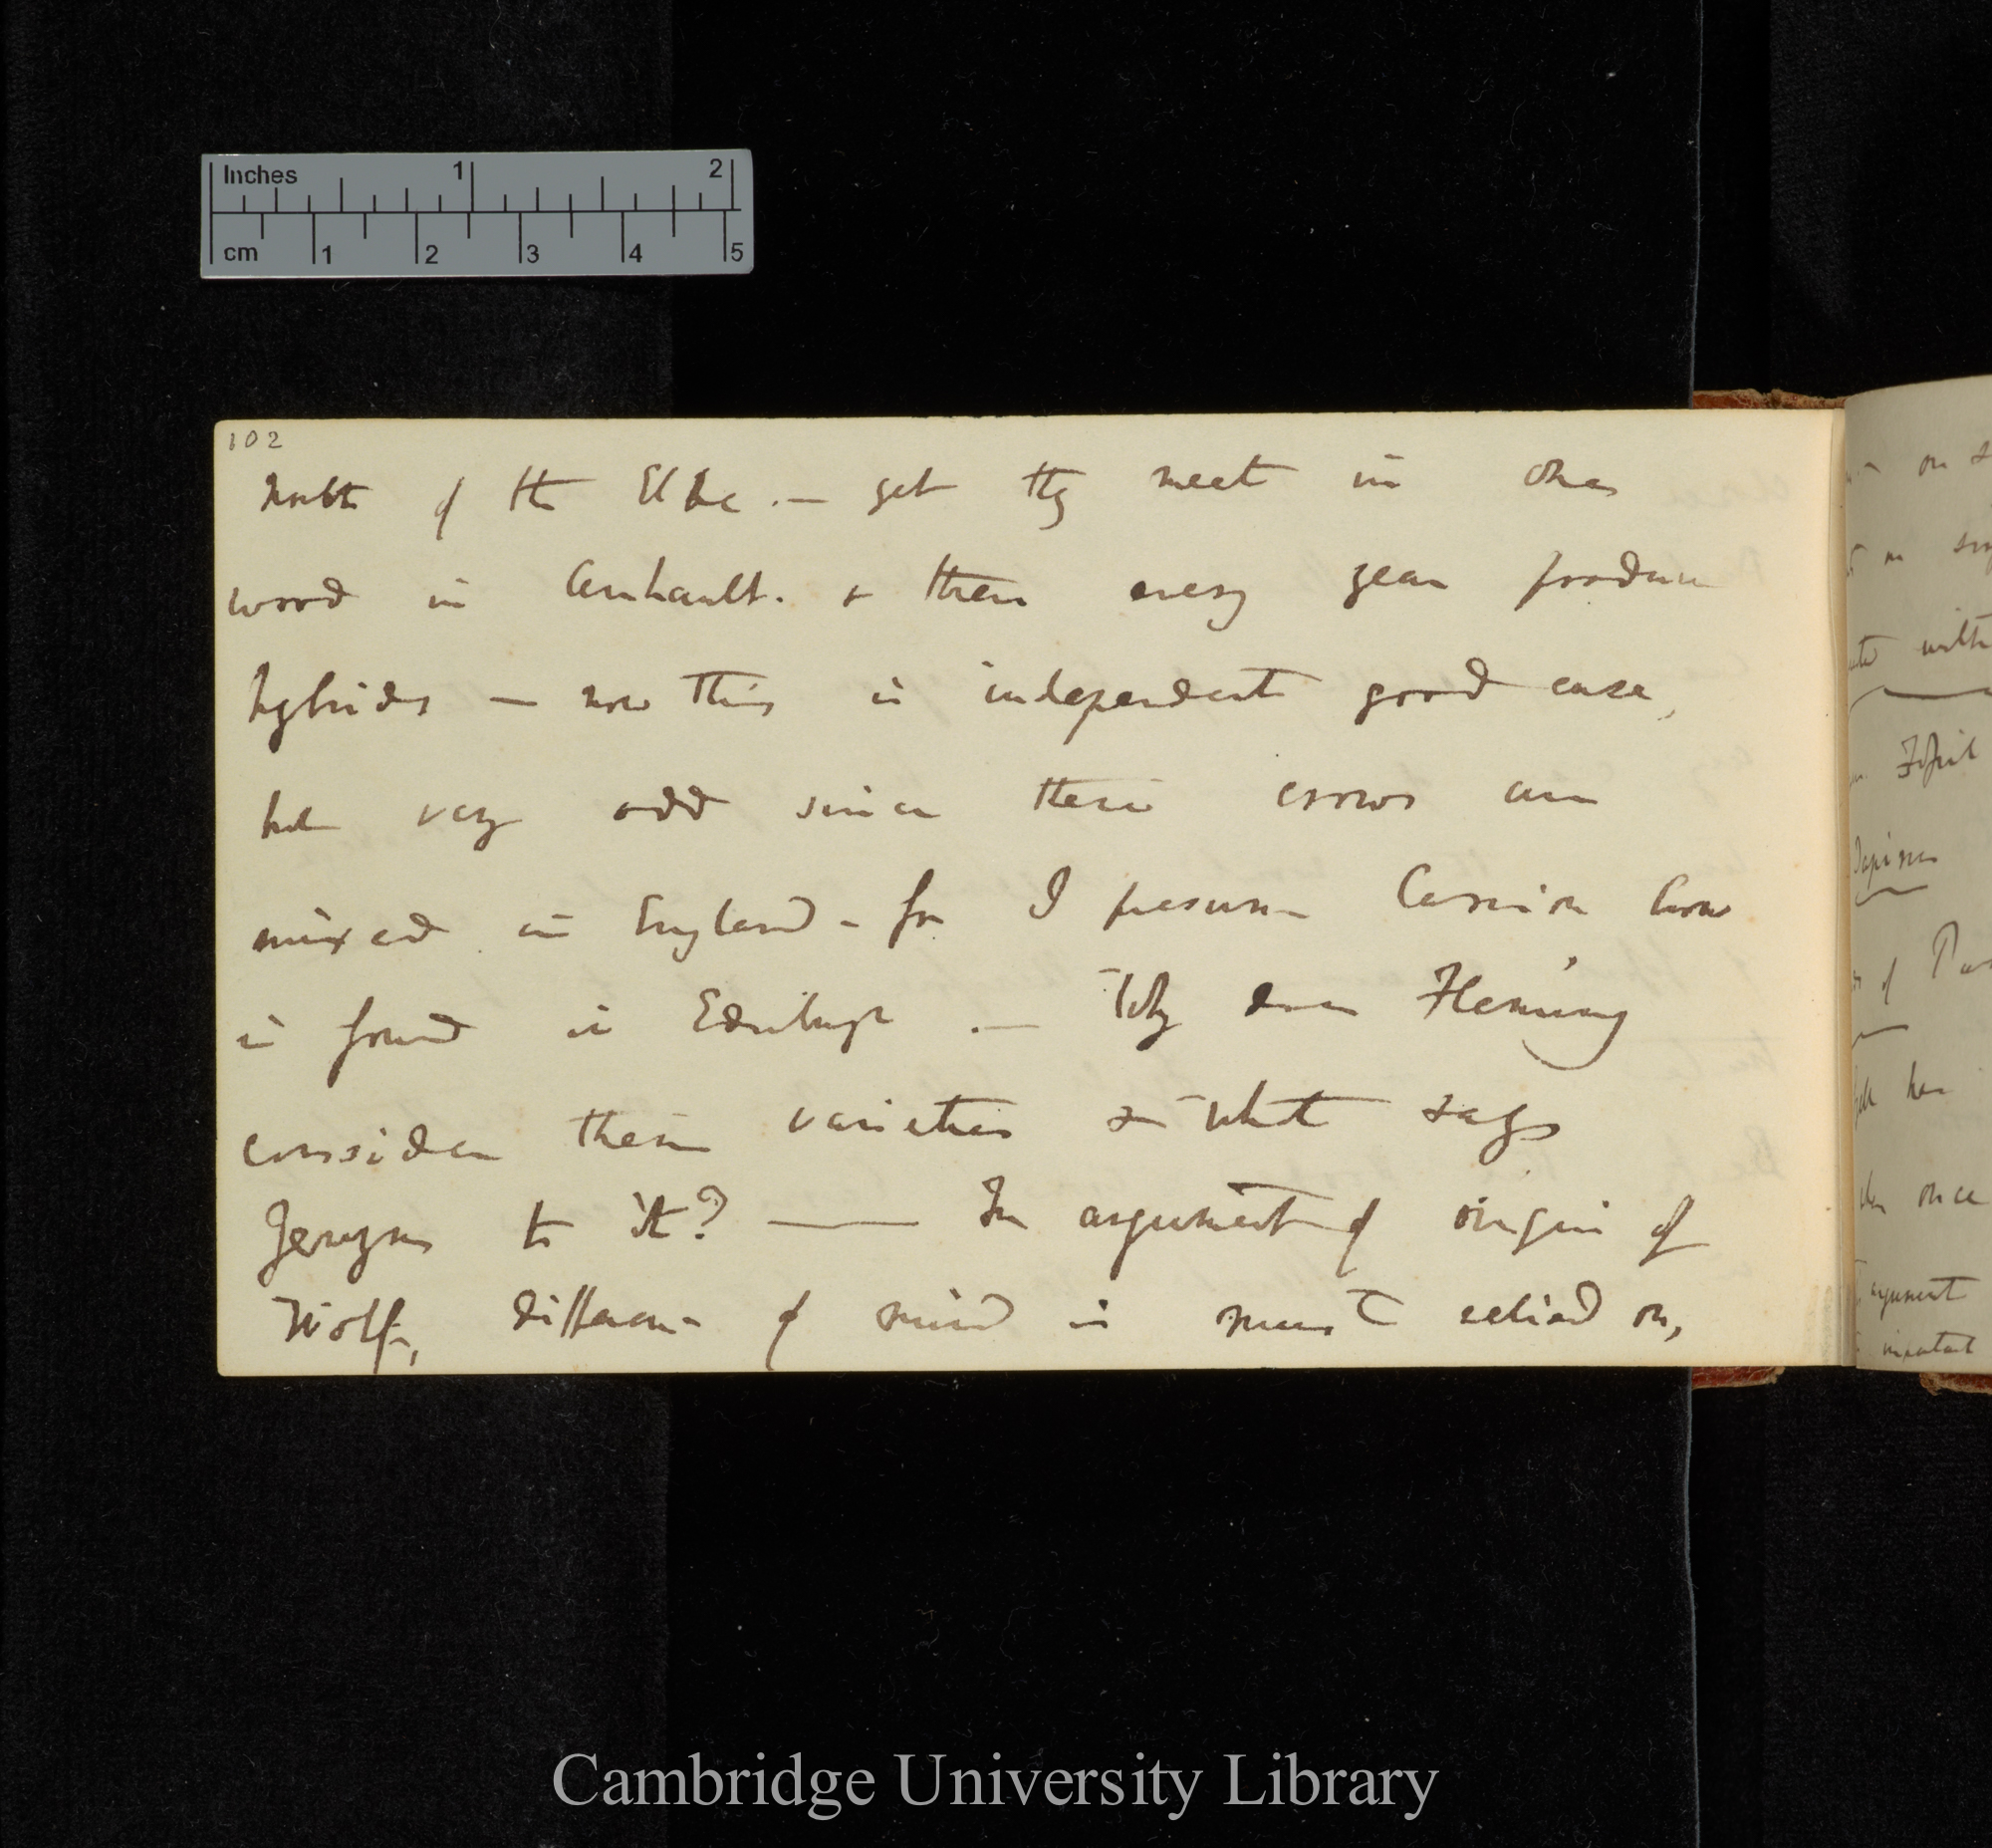 Inches 1 2
cm 1 2 3 4 5
102
north of the Elbe. — yet they meet in one
wood in Anhault. & there every year produce
hybrids — now this is independent good case,
but very odd since these crows are
mixed in England – for I presume Carrion Crow
is found in Edinburgh. — Why does Fleming
consider them varieties & what says
Jenyns to it? — In argument of origin of
Wolf, difference of mind is must relied on,
on
with
of
her
once
argument
important
Cambridge University Library